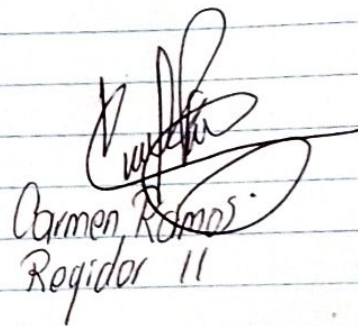 Carmen Ramos
Regidor 11